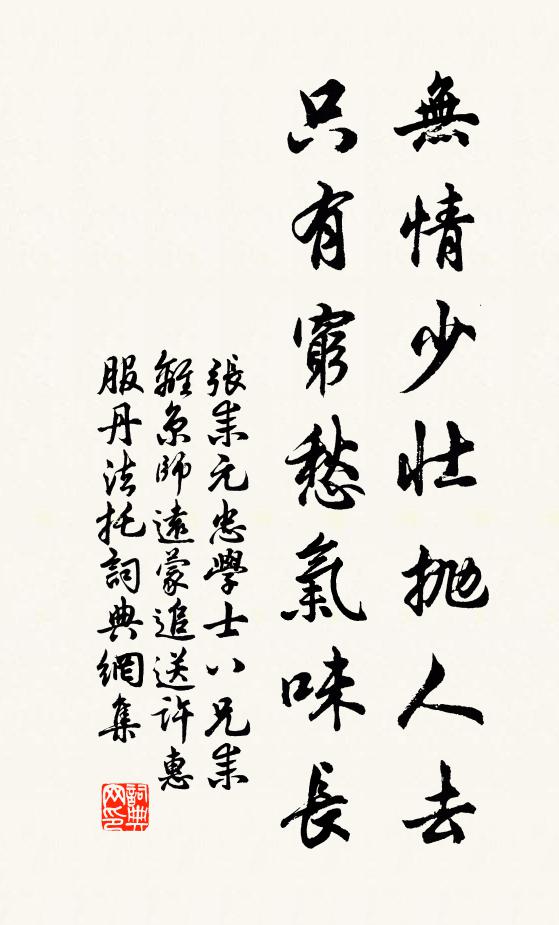 無情少壯拋人去
只有窮愁氣味長
張耒元忠學士八兄耒
離京師遠蒙追送許惠
服丹法托詞典網集
詞典网印